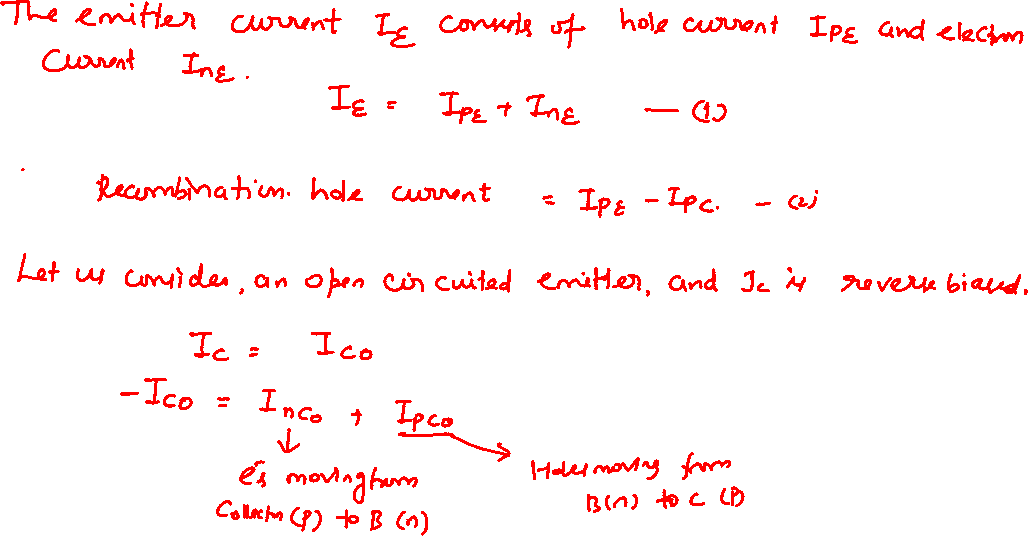 The emitter current I_E consists of hole current I_PE and electron
Current I_nE.
I_E = I_PE + I_nE — (1)
Recombination. hole current = I_PE - I_PC. - (2)
Let us consider, an open circuited emitter, and J_C is reverse biased.
I_C = I_CO
-I_CO = I_nCO + I_PCO
e⁻s moving from
Collector (P) to B (n)
Holes moving from
B(n) to C (P)